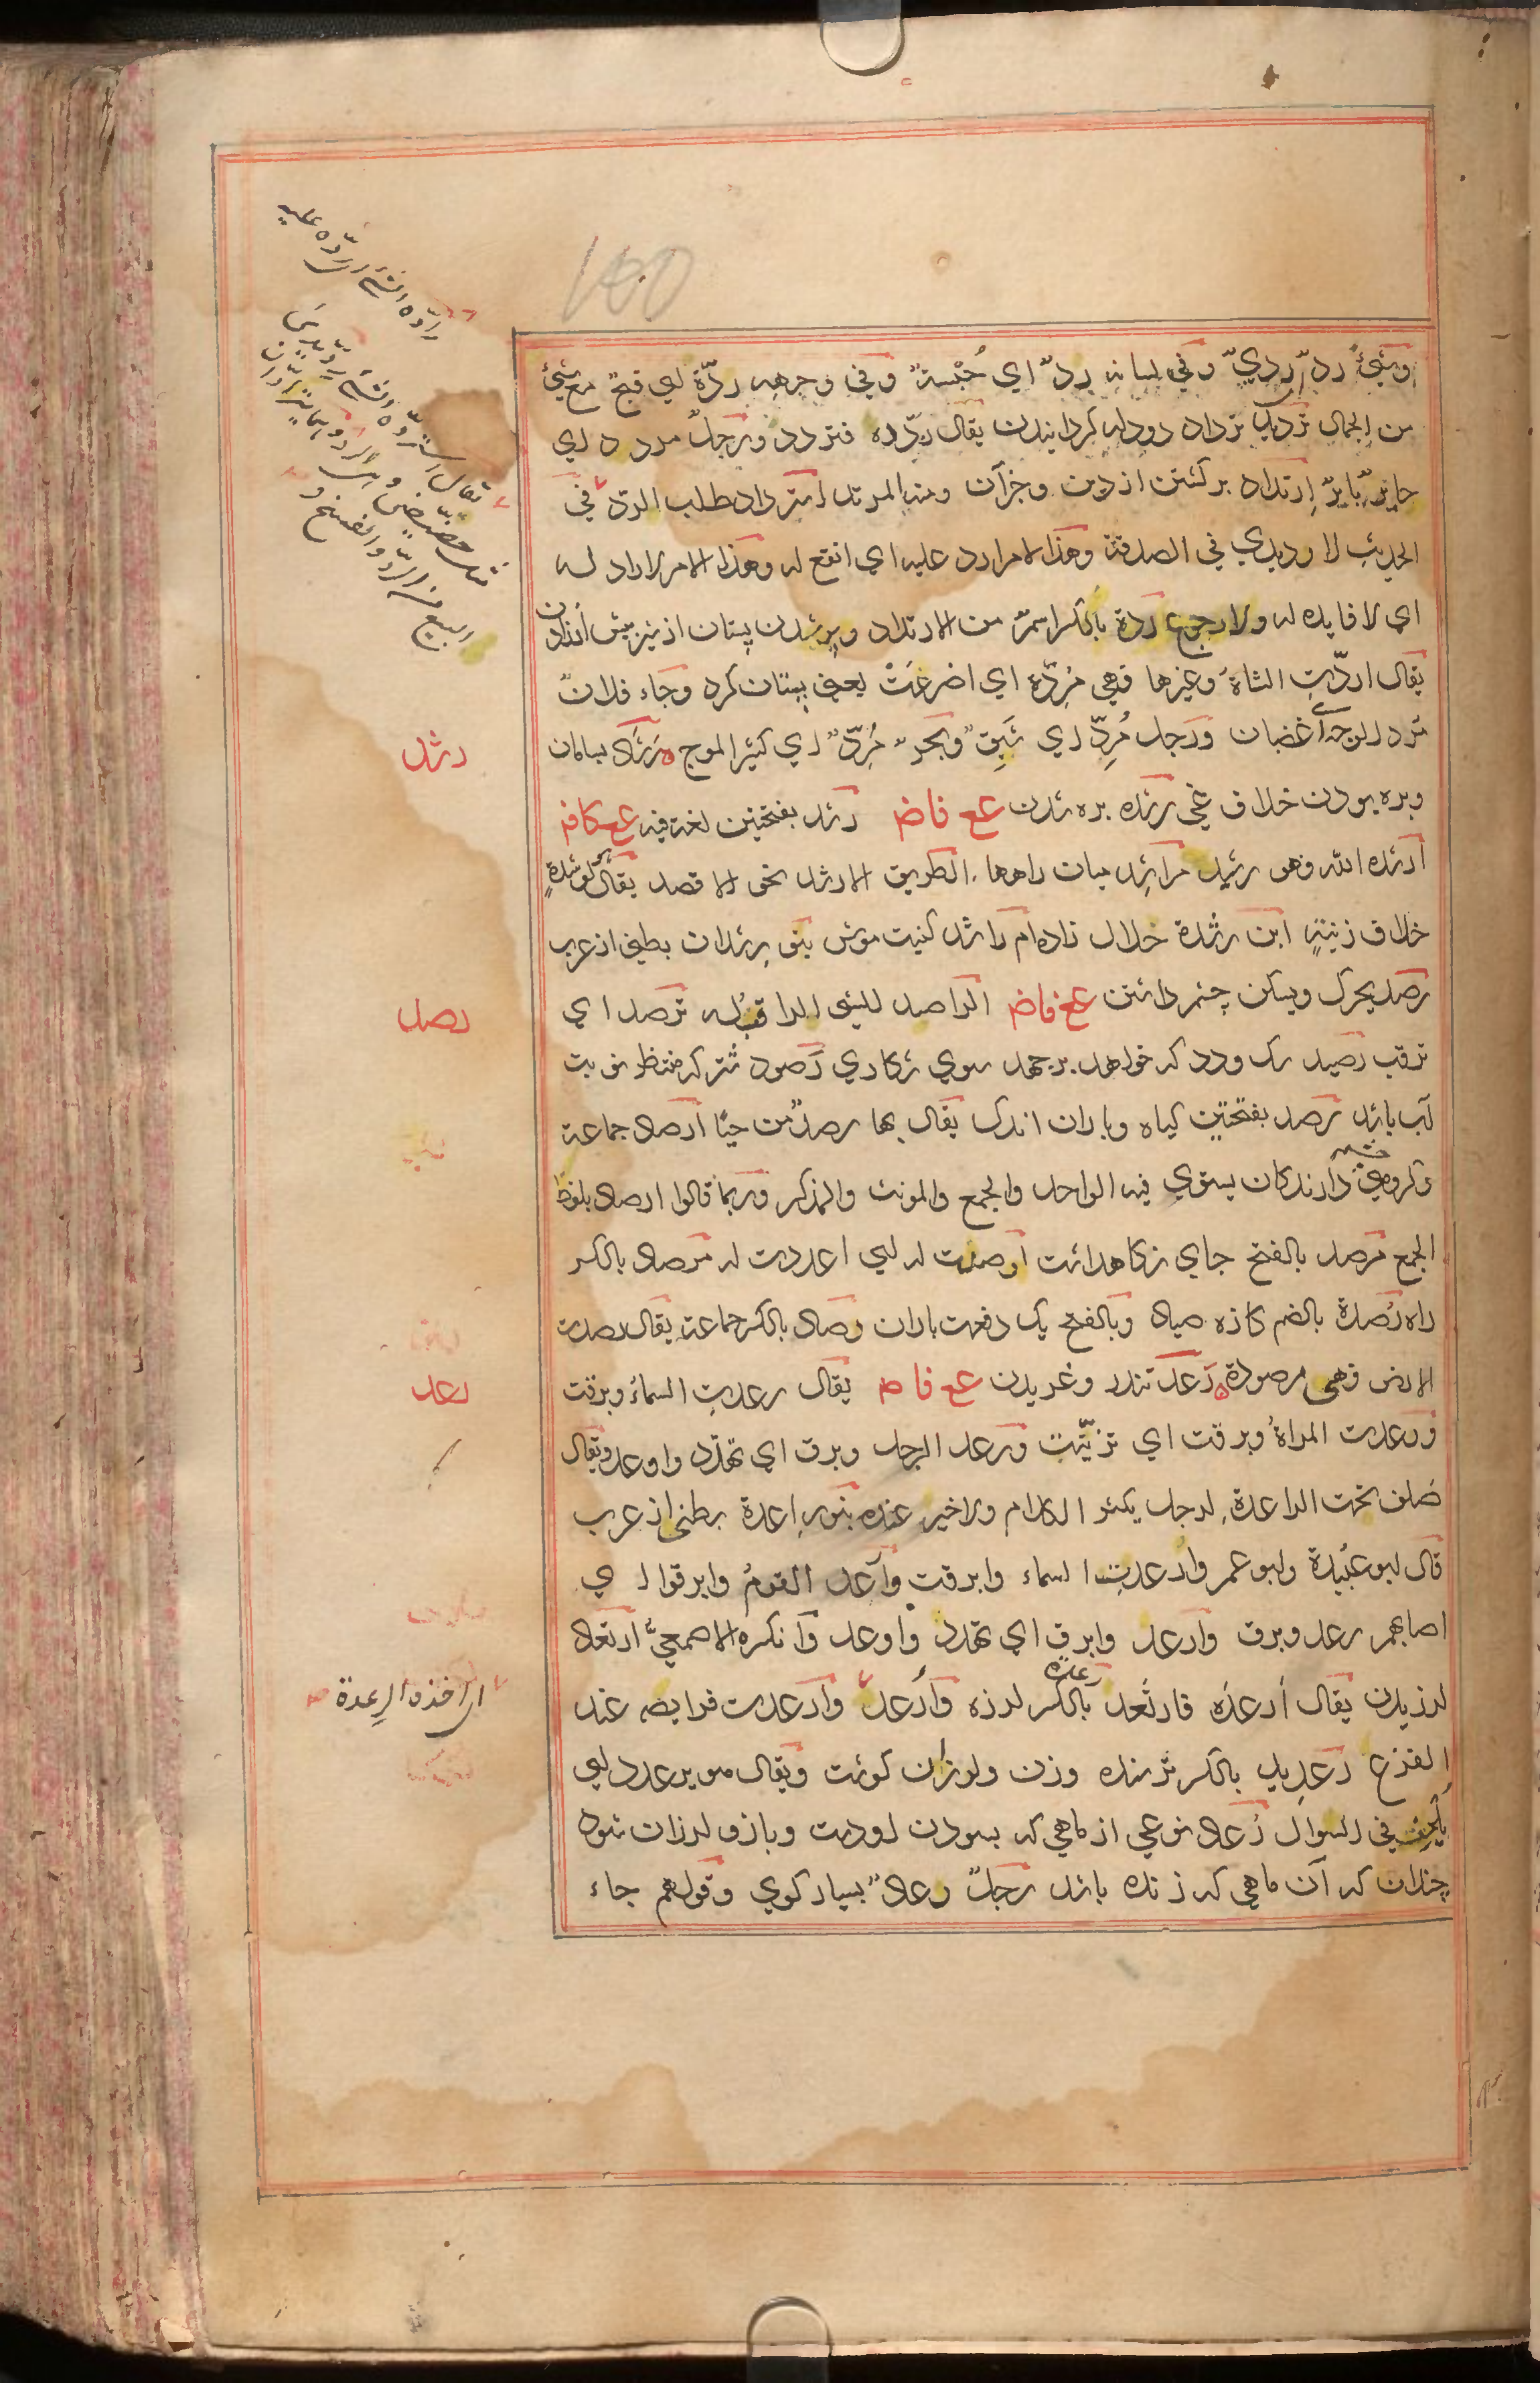 وشیئٌ ردّ ردیّ وفی لسانه ردّ ای حُبْسة وفی وجهه ردّة ای قبح مع شیئ
من الجمال تردید ترداد دودله کردانیدن یقال ردّده فتردد ورجل مردد ای
حایرٌ بایرٌ ارتداد برکشتن از دین وجزآن ومنه المرتد استرداد طلب الرد فی
الحدیث لا ردیدی فی الصدقة وهذا الامر ارد علیه ای انفع له وهذا الامر لا راد له
ای لا فایده له ولا رجوع ردة بالکسر اسم من الارتداد وپر شدن پستان از شیر پیش از زادن
یقال اردّت الشاة وغیرها فهی مُرِدّة ای اضرعَتْ یعنی پستان کرد وجاء فلانٌ
مُرد الوجه ای غضبان ورجل مُرِدّ ای شَبِق وبحر مُرِدّ ای کثیر الموج رَشَد بسامان
وبره بودن خلاف غی رشد بره شدن عع فاض رشد بفتحتین لغة فیه عع کاف
ارشده الله وهو رشید مراشد میان راهها الطریق الارشد نحو الاقصد یقال هو لرشدةٍ
خلاف زنیةٍ ابن رشدة حلال زاده ام راشد کنیت موش بنو رشدان بطنی از عرب
رصد یحرک ویسکن چشم داشتن عع فاض الراصد للشیئ الراقب له ترصد ای
ترقب رصید سک ودد که خواهد برجهد سوی شکاری رَصود شتر که منتظر نوبت
آب باشد رصد بفتحتین کیاه وباران اندک یقال بها رصدٌ من حیًا ارصاد جماعة
وکروهی چشم دارندکان یستوی فیه الواحد والجمع والمونث والمذکر وربما قالوا ارصاد بلفظ
الجمع مرصد بالفتح جای نکاهداشت ارصدت له ای اعددت له مرصاد بالکسر
راه رُصدة بالضم کازه صیاد وبالفتح یک دفعت باران رصاد بالکسر جماعة یقال رصدت
الارض فهی مرصودة رَعد تندر وغریدن عع فاض یقال رعدت السماء وبرقت
ورعدت المراة وبرقت ای تزیّنت ورعد الرجل وبرق ای تهدّد واوعد ویقال
صلف تحت الراعدة لرجل یکثر الکلام ولا خیر عنده بنو راعدة بطنی از عرب
قال ابو عبیدة وابو عمرو ارعدت السماء وابرقت وارعد القوم وابرقوا ای
اصابهم رعد وبرق وارعد وابرق ای تهدد واوعد وانکره الاصمعیّ ارتعاد
لرزیدن یقال أرعَدَه فارتَعد رعدة بالکسر لرزه واُرعد وارعدت فرایصه عند
الفزع رعدید بالکسر ترسنده وزن ولرزان کوشت ویقال هو یرعدد ای
یلحف فی السوال رُعاد نوعی از ماهی که بسودن او دست وبازو لرزان شود
چندان که آن ماهی که زنده باشد رجلٌ رعادٌ بسیار کوی وقولهم جاء
رادّه الشئ ای ردّه علیه
یقال استردّه الشئ
البیع من الرد والفسخ
رشد
رصد
رعد
ای اخذه الرِعدة
100